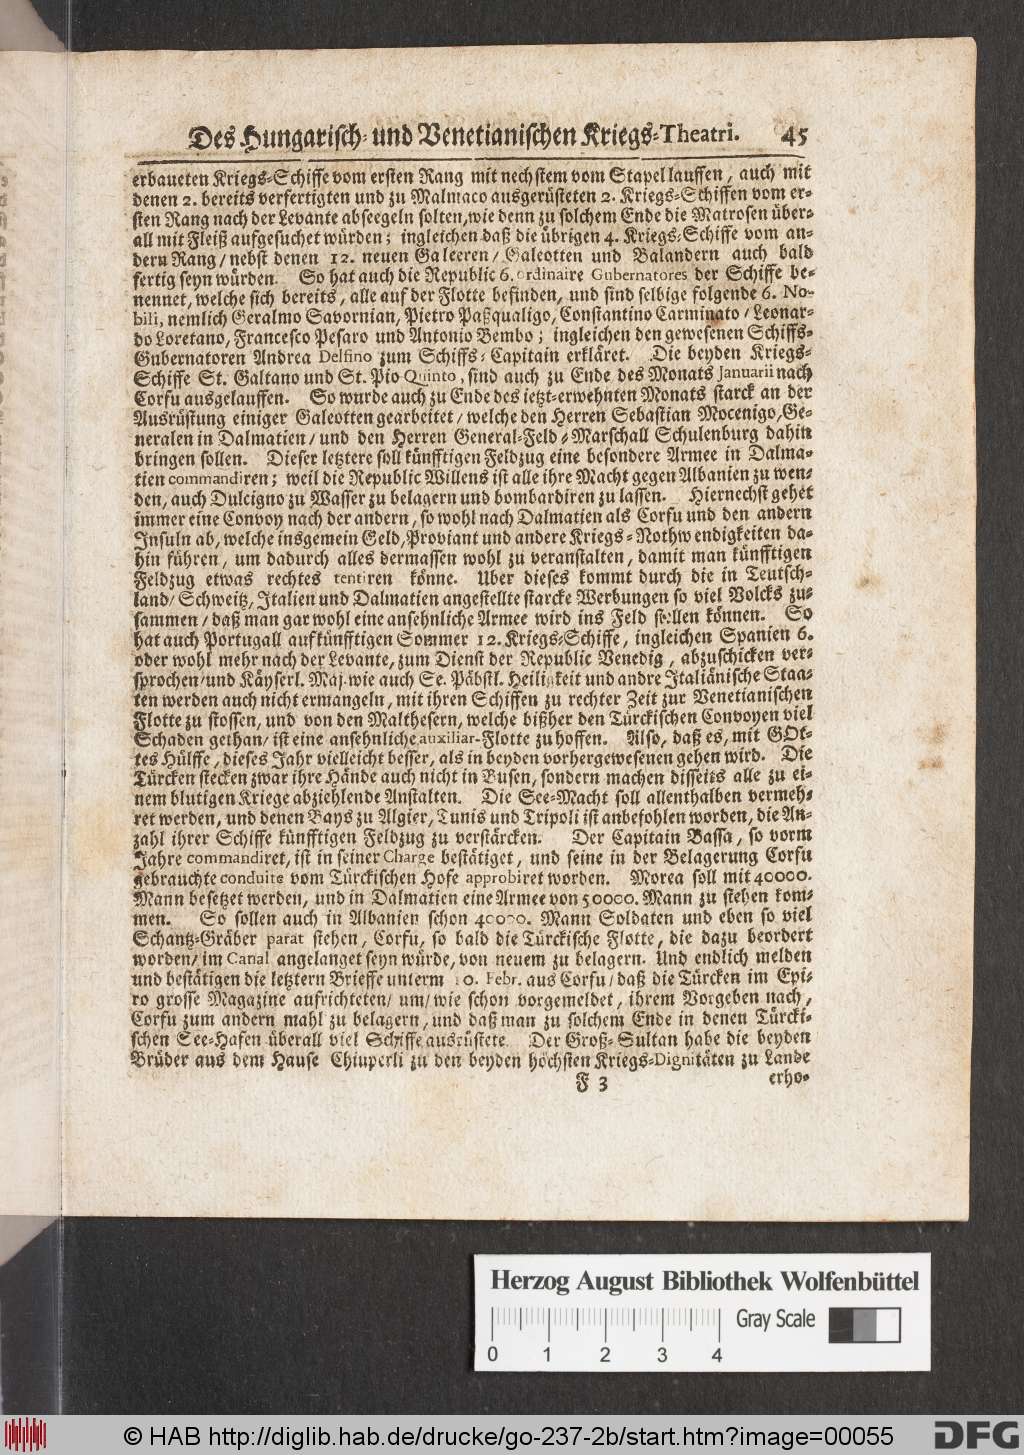 Des Hungarisch- und Venetianischen Kriegs-Theatri. 45
erbaueten Kriegs-Schiffe vom ersten Rang mit nechstem vom Stapel lauffen, auch mit
denen 2. bereits verfertigten und zu Malmaco ausgerüsteten 2. Kriegs-Schiffen vom er-
sten Rang nach der Levante abseegeln solten, wie denn zu solchem Ende die Matrosen über-
all mit Fleiß aufgesuchet würden; ingleichen daß die übrigen 4. Kriegs-Schiffe vom an-
dern Rang/ nebst denen 12. neuen Galeeren/ Galeotten und Balandern auch bald
fertig seyn würden. So hat auch die Republic 6. ordinaire Gubernatores der Schiffe be-
nennet, welche sich bereits, alle auf der Flotte befinden, und sind selbige folgende 6. No-
bili, nemlich Geralmo Savornian, Pietro Paßqualigo, Constantino Carminato/ Leonar-
do Loretano, Francesco Pesaro und Antonio Bembo; ingleichen den gewesenen Schiffs-
Gubernatoren Andrea Delfino zum Schiffs-Capitain erkläret. Die beyden Kriegs-
Schiffe St. Galtano und St. Pio Quinto, sind auch zu Ende des Monats Januarii nach
Corfu ausgelauffen. So wurde auch zu Ende des ietzt-erwehnten Monats starck an der
Ausrüstung einiger Galeotten gearbeitet/ welche den Herren Sebastian Mocenigo, Ge-
neralen in Dalmatien/ und den Herren General-Feld-Marschall Schulenburg dahin
bringen sollen. Dieser letztere soll künfftigen Feldzug eine besondere Armee in Dalma-
tien commandiren; weil die Republic Willens ist alle ihre Macht gegen Albanien zu wen-
den, auch Dulcigno zu Wasser zu belagern und bombardiren zu lassen. Hiernechst gehet
immer eine Convoy nach der andern, so wohl nach Dalmatien als Corfu und den andern
Insuln ab, welche insgemein Geld, Proviant und andere Kriegs-Nothwendigkeiten da-
hin führen, um dadurch alles dermassen wohl zu veranstalten, damit man künfftigen
Feldzug etwas rechtes tentiren könne. Uber dieses kommt durch die in Teutsch-
land/ Schweitz, Italien und Dalmatien angestellte starcke Werbungen so viel Volcks zu-
sammen/ daß man gar wohl eine ansehnliche Armee wird ins Feld stellen können. So
hat auch Portugall auf künfftigen Sommer 12. Kriegs-Schiffe, ingleichen Spanien 6.
oder wohl mehr nach der Levante, zum Dienst der Republic Venedig, abzuschicken ver-
sprochen/ und Käyserl. Maj. wie auch Se. Päbstl. Heiligkeit und andre Italiänische Staa-
ten werden auch nicht ermangeln, mit ihren Schiffen zu rechter Zeit zur Venetianischen
Flotte zu stossen, und von den Malthesern, welche bißher den Türckischen Convoyen viel
Schaden gethan/ ist eine ansehnliche auxiliar-Flotte zu hoffen. Also, daß es, mit GOt-
tes Hülffe, dieses Jahr vielleicht besser, als in beyden vorhergewesenen gehen wird. Die
Türcken stecken zwar ihre Hände auch nicht in Busen, sondern machen disseits alle zu ei-
nem blutigen Kriege abziehlende Anstalten. Die See-Macht soll allenthalben vermeh-
ret werden, und denen Bays zu Algier, Tunis und Tripoli ist anbefohlen worden, die An-
zahl ihrer Schiffe künfftigen Feldzug zu verstärcken. Der Capitain Bassa, so vorm
Jahre commandiret, ist in seiner Charge bestätiget, und seine in der Belagerung Corfu
gebrauchte conduite vom Türckischen Hofe approbiret worden. Morea soll mit 40000.
Mann besetzet werden, und in Dalmatien eine Armee von 50000. Mann zu stehen kom-
men. So sollen auch in Albanien schon 40000. Mann Soldaten und eben so viel
Schantz-Gräber parat stehen, Corfu, so bald die Türckische Flotte, die dazu beordert
worden/ im Canal angelanget seyn würde, von neuem zu belagern. Und endlich melden
und bestätigen die letztern Brieffe unterm 10. Febr. aus Corfu/ daß die Türcken im Epi-
ro grosse Magazine aufrichteten/ um/ wie schon vorgemeldet, ihrem Vorgeben nach,
Corfu zum andern mahl zu belagern, und daß man zu solchem Ende in denen Türcki-
schen See-Hafen überall viel Schiffe ausrüstete. Der Groß-Sultan habe die beyden
Brüder aus dem Hause Chiuperli zu den beyden höchsten Kriegs-Dignitäten zu Lande
F 3 erho-
Herzog August Bibliothek Wolfenbüttel
Gray Scale
0 1 2 3 4
© HAB http://diglib.hab.de/drucke/go-237-2b/start.htm?image=00055
DFG